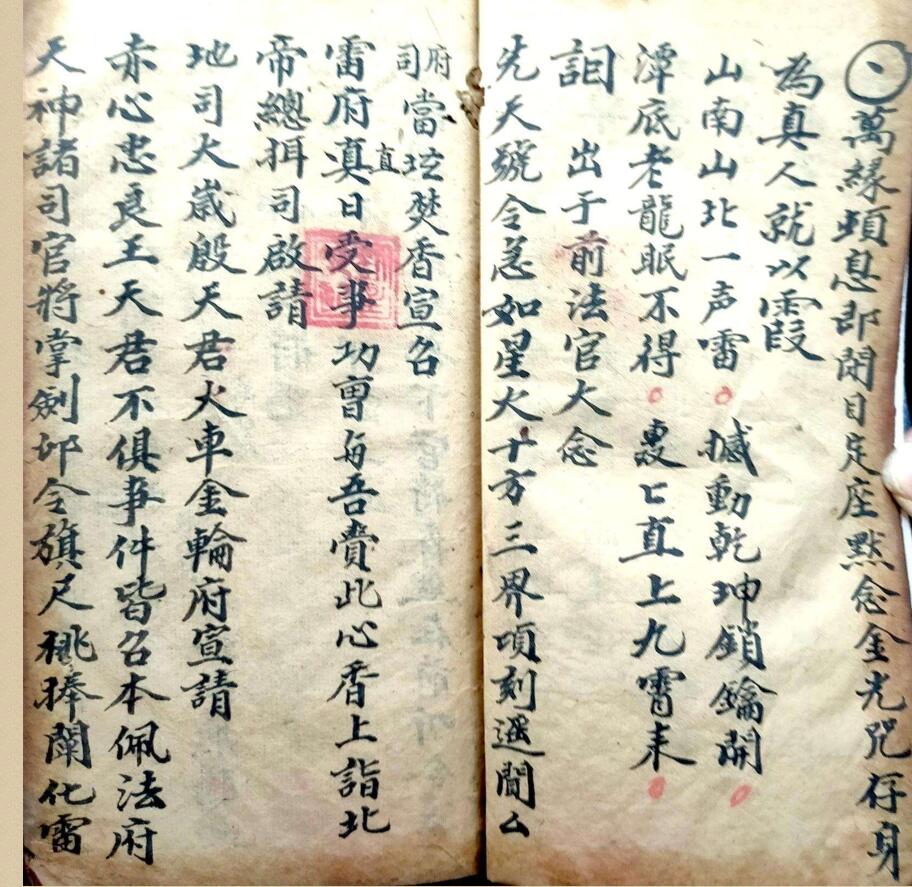 萬緣頓息即閉目定座默念金光咒存身
為真人就以霞
山南山北一声雷 撼動乾坤鎖鑰開
潭底老龍眠不得 轰匕直上九霄来
詛 出于前法官大念
先天號令急如星火十方三界項刻遥聞厶
府司當坛焚香宣召
雷府真日直受事功曹每吾賫此心香上詣北
帝總拜司啟請
地司大歲殷天君火車金輪府宣請
赤心忠良王天君不俱事件皆召本佩法府
天神諸司官將掌劍印令旗尺捧闌化雷